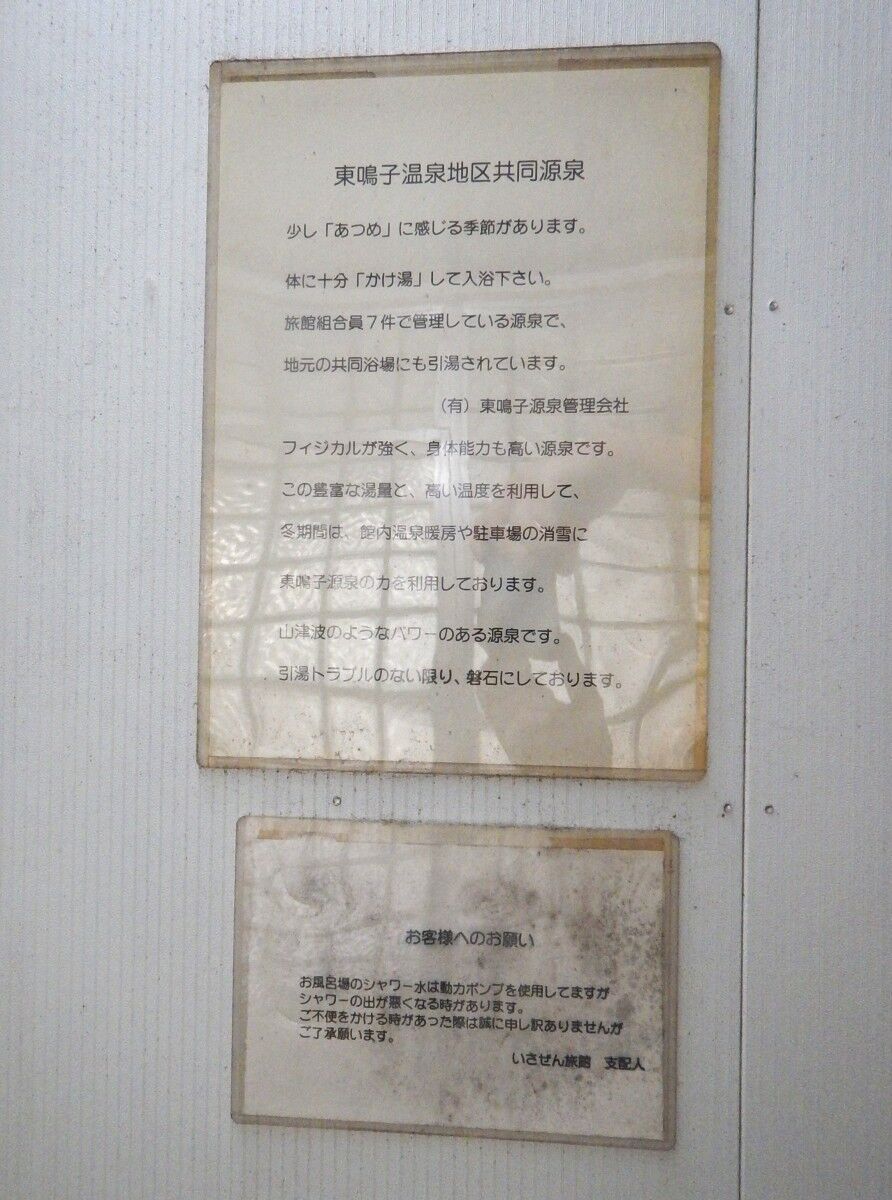 東鳴子温泉地区共同源泉
少し「あつめ」に感じる季節があります。
体に十分「かけ湯」して入浴下さい。
旅館組合員7件で管理している源泉で、
地元の共同浴場にも引湯されています。
（有）東鳴子源泉管理会社
フィジカルが強く、身体能力も高い源泉です。
この豊富な湯量と、高い温度を利用して、
冬期間は、館内温泉暖房や駐車場の消雪に
東鳴子源泉の力を利用しております。
山津波のようなパワーのある源泉です。
引湯トラブルのない限り、磐石にしております。
お客様へのお願い
お風呂場のシャワー水は動力ポンプを使用してますが
シャワーの出が悪くなる時があります。
ご不便をかける時があった際は誠に申し訳ありませんが
ご了承願います。
いさぜん旅館　支配人